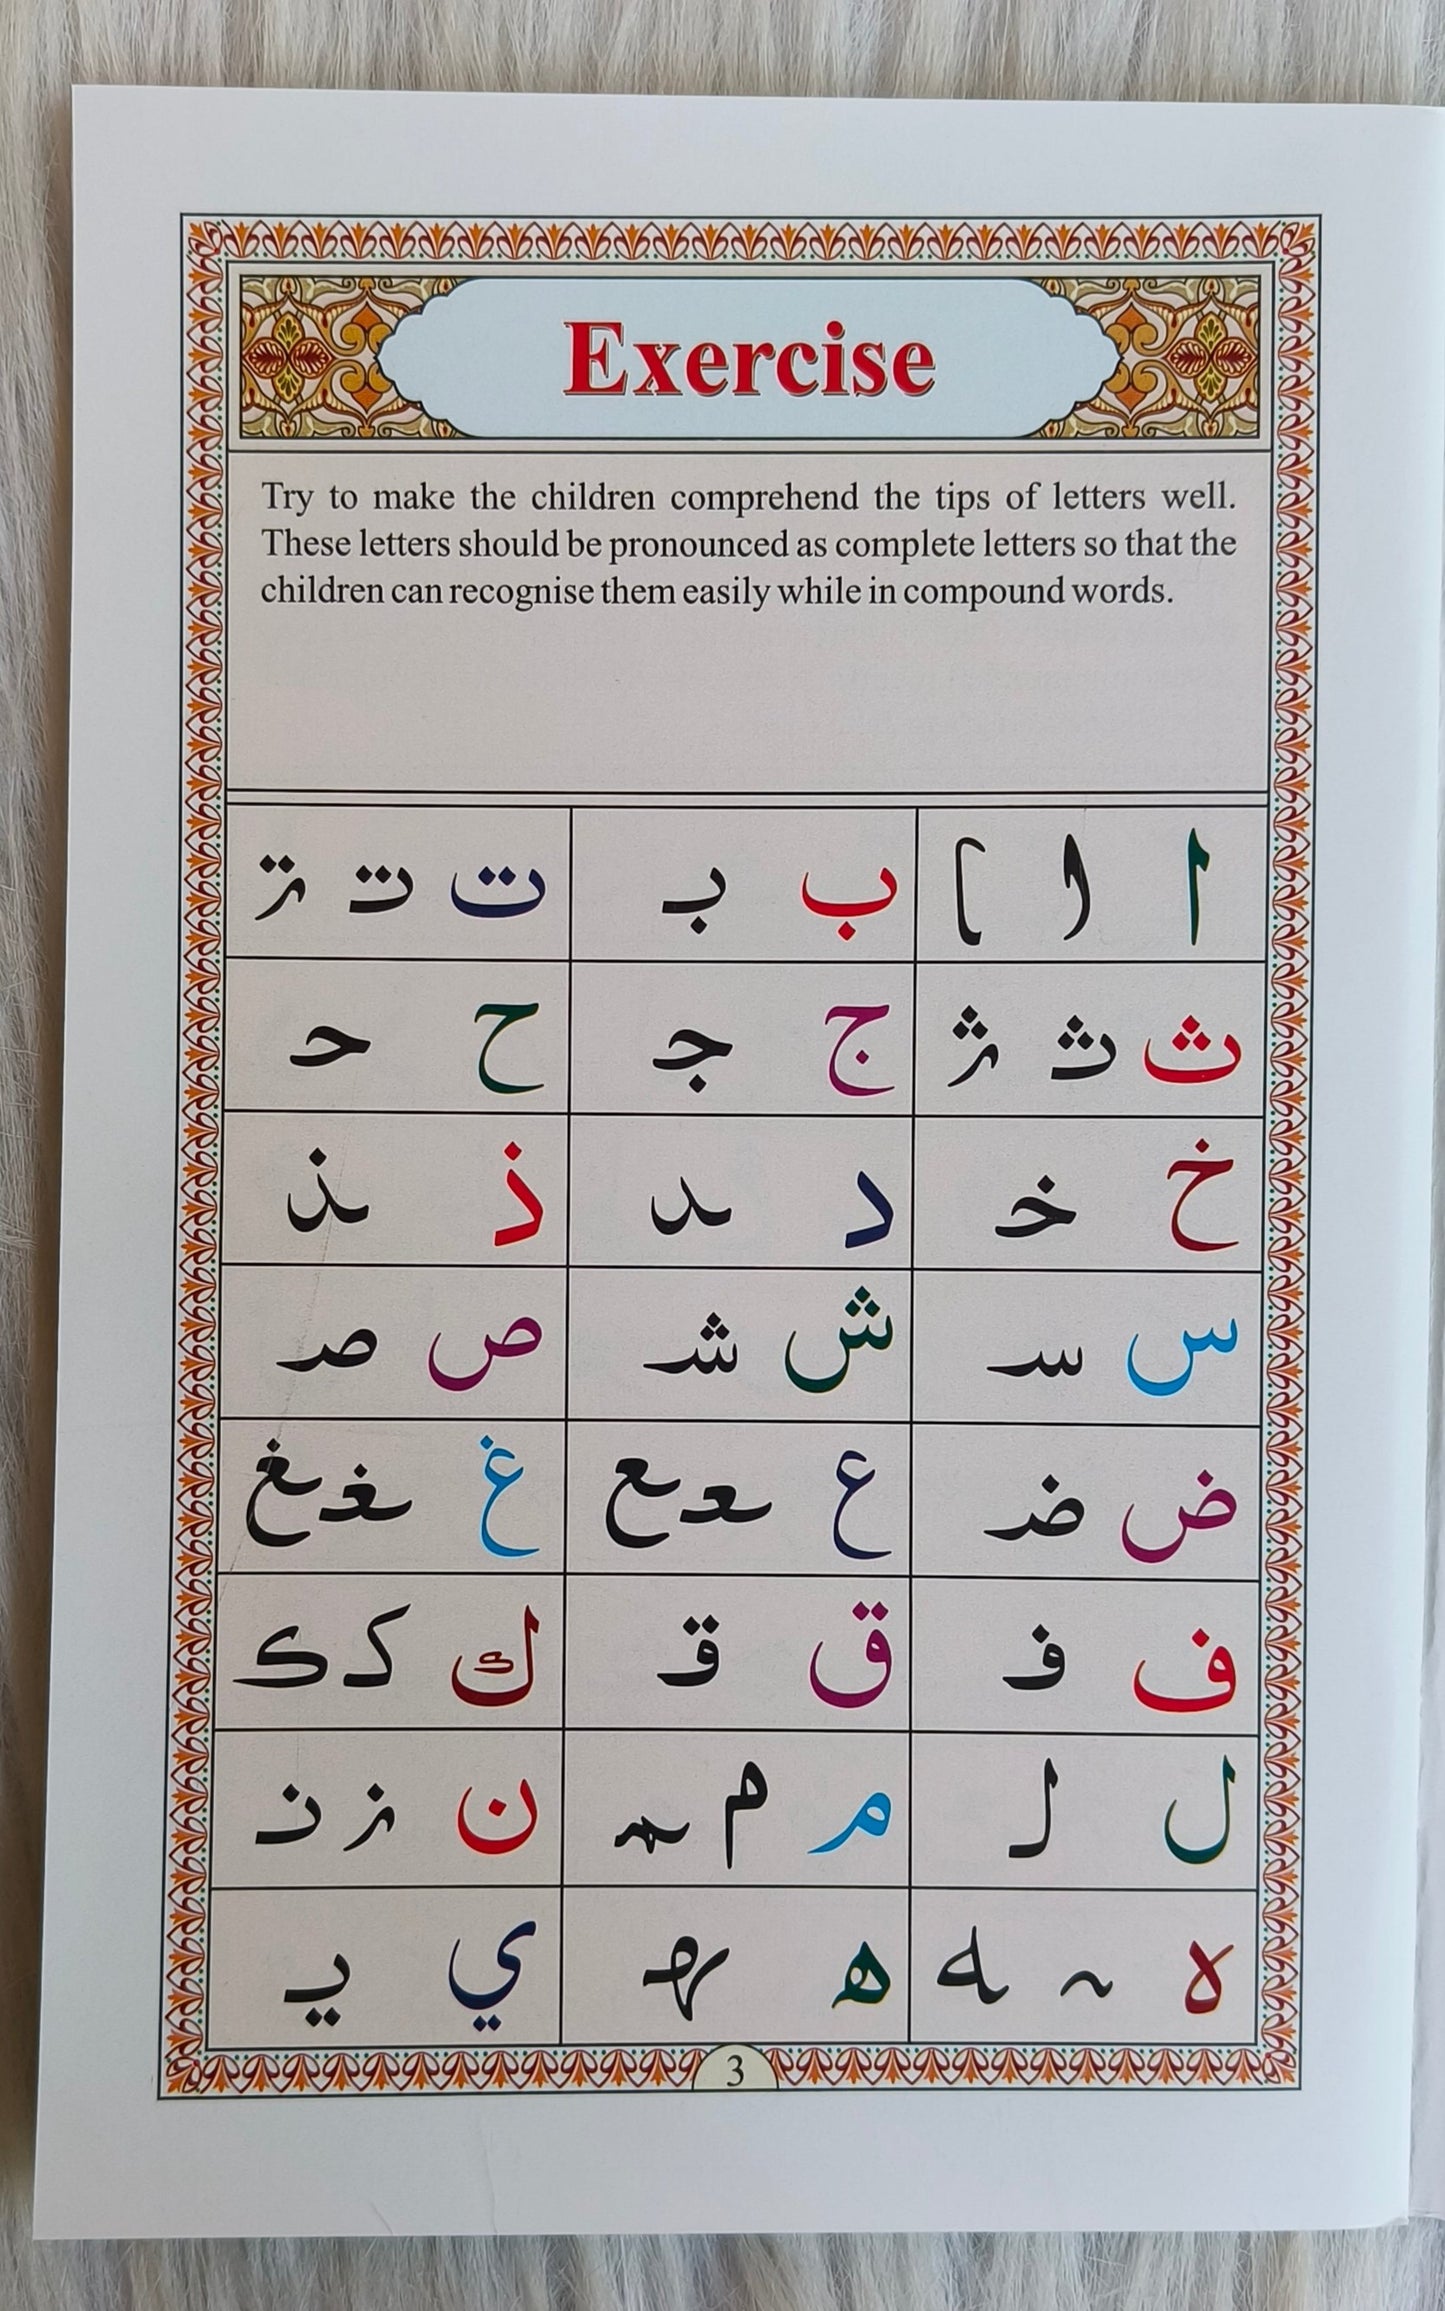 Exercise
Try to make the children comprehend the tips of letters well.
These letters should be pronounced as complete letters so that the
children can recognise them easily while in compound words.
ا ا ا ب بـ ت تـ تـ
ث ثـ ثـ ج جـ ح حـ
خ خـ د ـد ذ ـذ
س سـ ش شـ ص صـ
ض ضـ ع ـعـ ـع غ ـغـ ـغ
ف فـ ق قـ ك كـ ک
ل لـ م م ـمـ ن نـ نـ
ه ـہ ـه ه ـهـ ي يـ
3